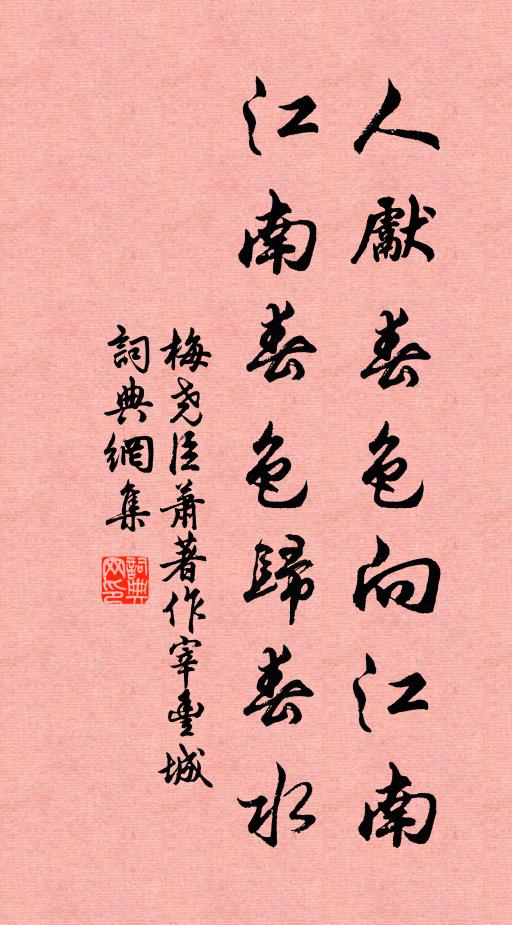 人獻春色向江南
江南春色歸春水
梅堯臣蕭著作宰豐城
詞典網集
詞典網印